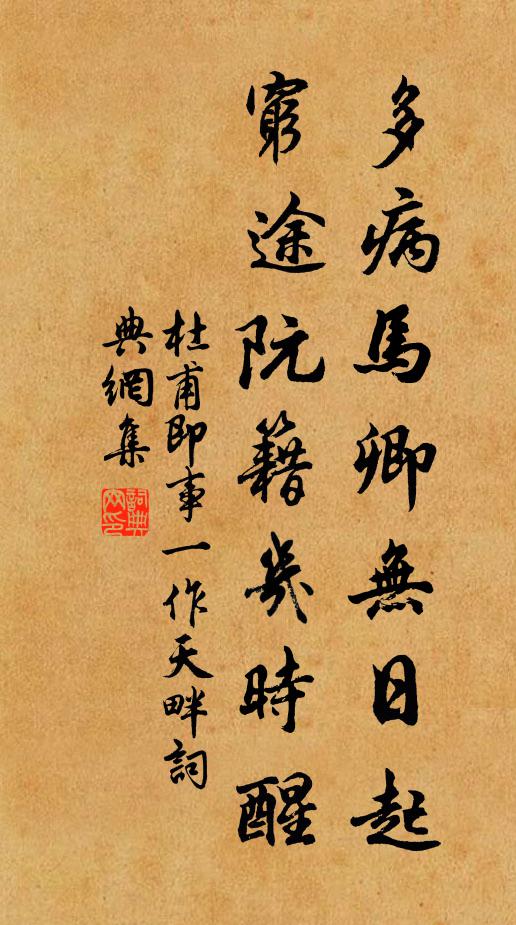 多病馬卿無日起
窮途阮籍幾時醒
杜甫即事一作天畔詞
典網集
詞典網印